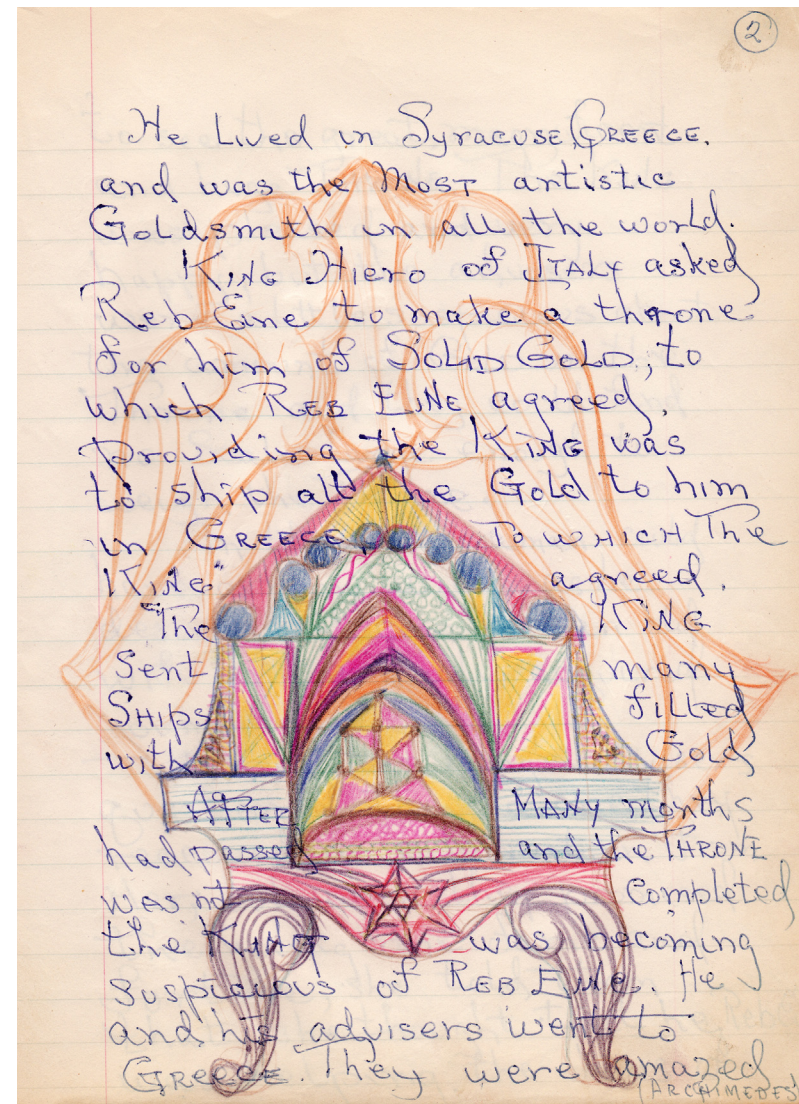 2
He Lived in Syracuse, GREECE.
and was the MOST artistic
Goldsmith in all the world.
KING Hiero of ITALY asked
Reb Eine to make a throne
for him of SOLID GOLD, to
which REB EINE agreed,
providing the KING was
to ship all the Gold to him
in GREECE, TO WHICH The
KING agreed.
The KING
Sent many
SHIPS filled
with Gold
AFTER MANY months
had passed and the THRONE
was not completed
the KING was becoming
suspicious of REB EINE. He
and his advisers went to
GREECE. They were amazed
(ARCHIMEDES)